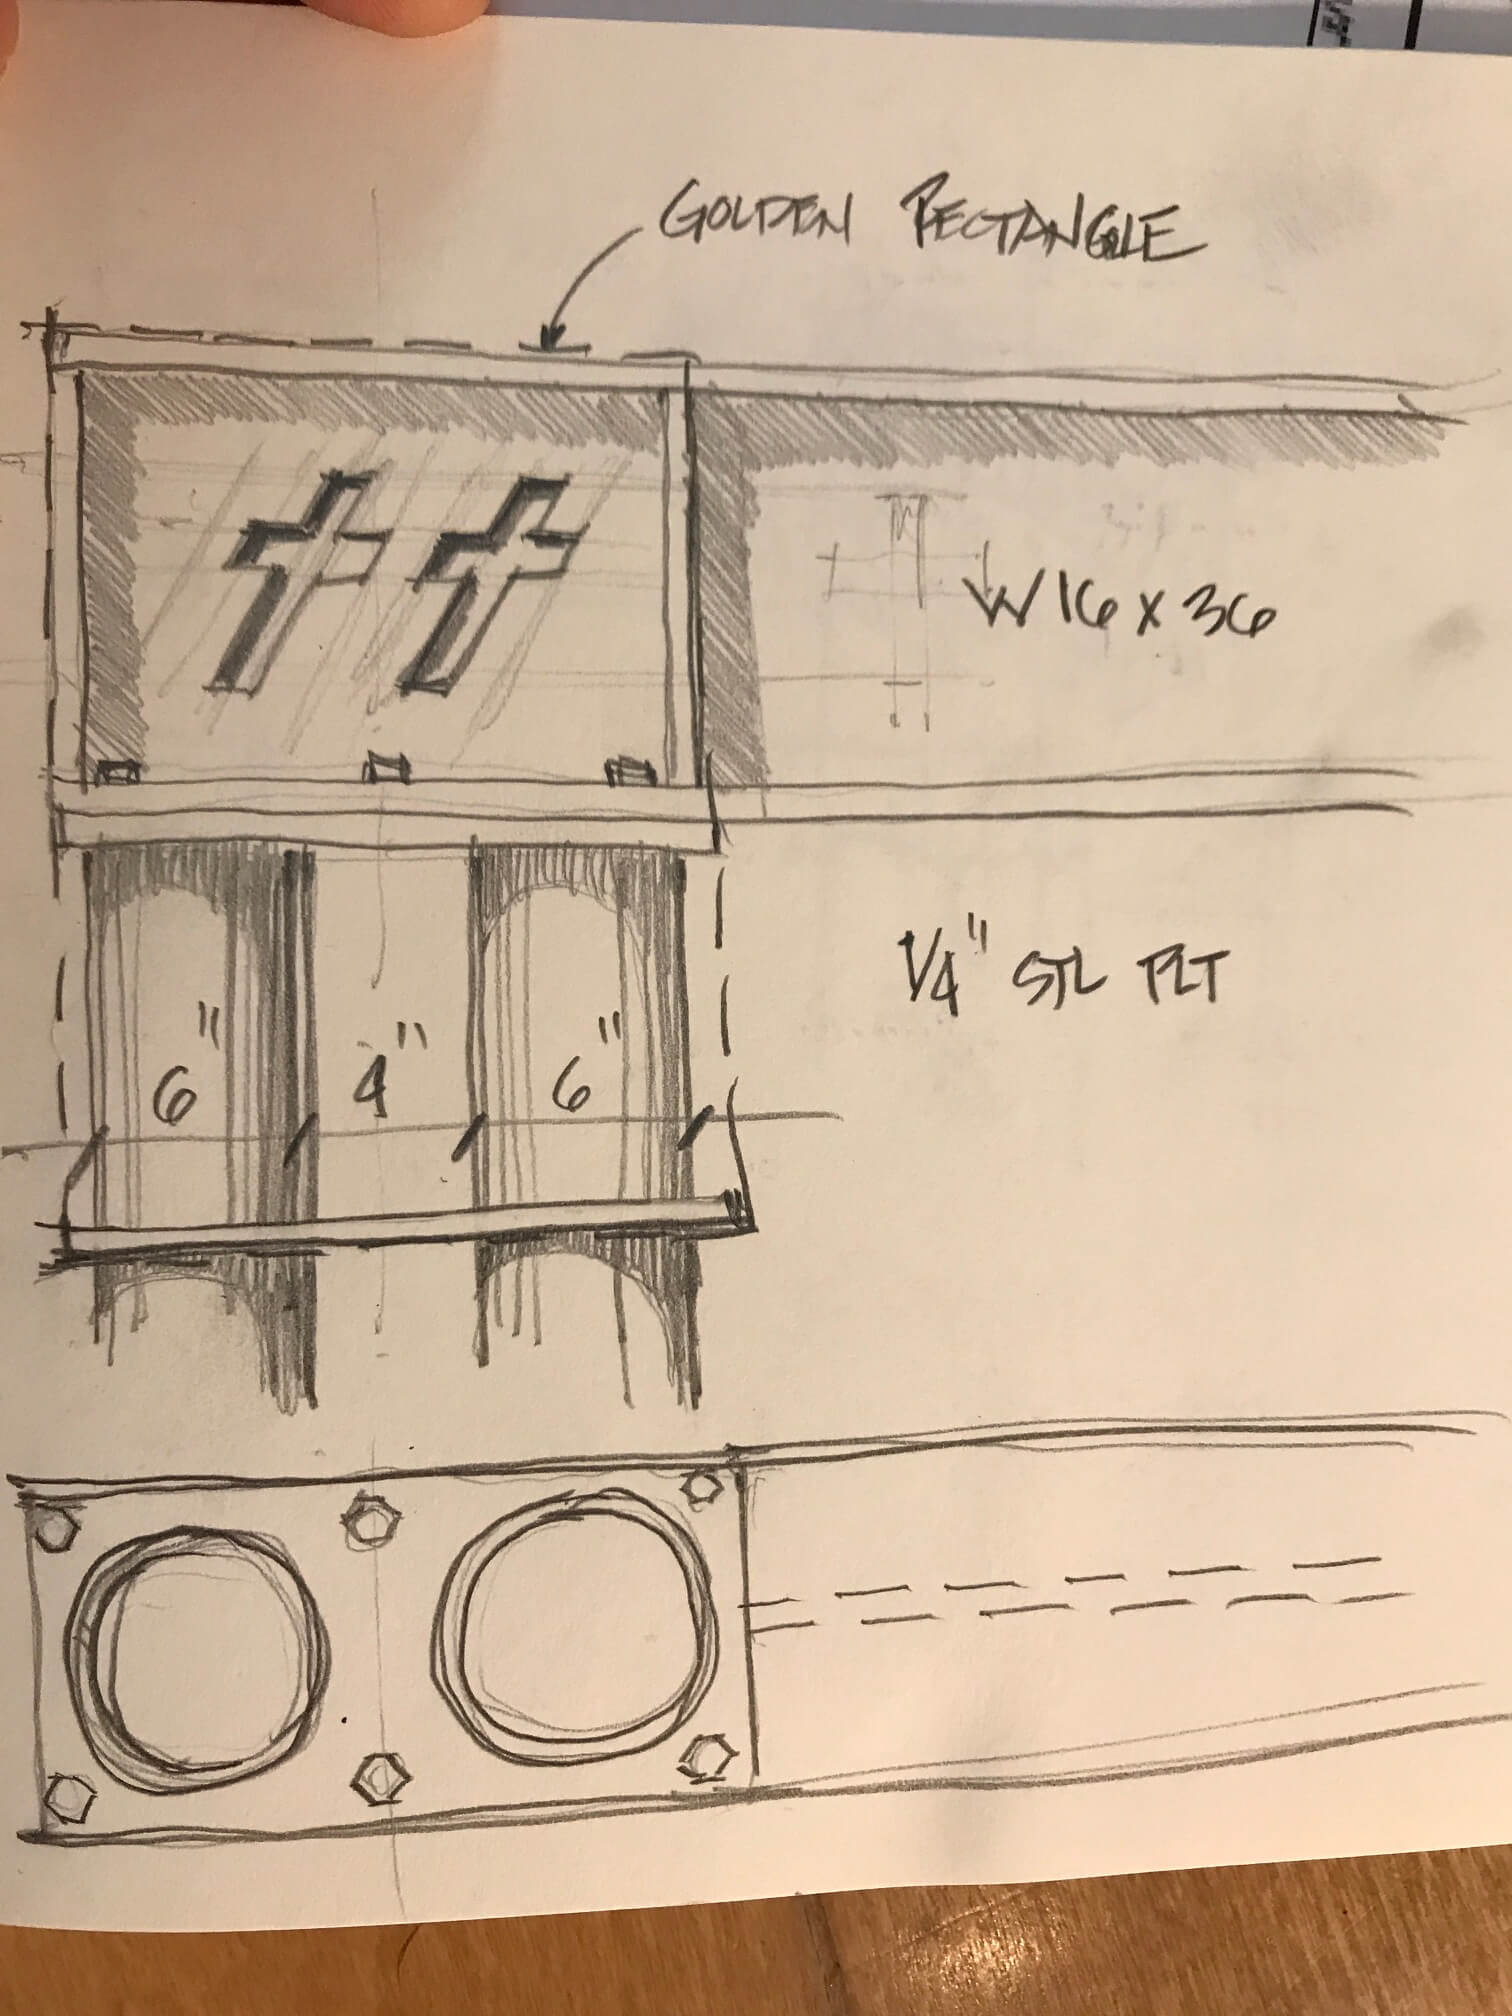 GOLDEN RECTANGLE
W 16 x 36
1/4" STL PLT
6" 4" 6"